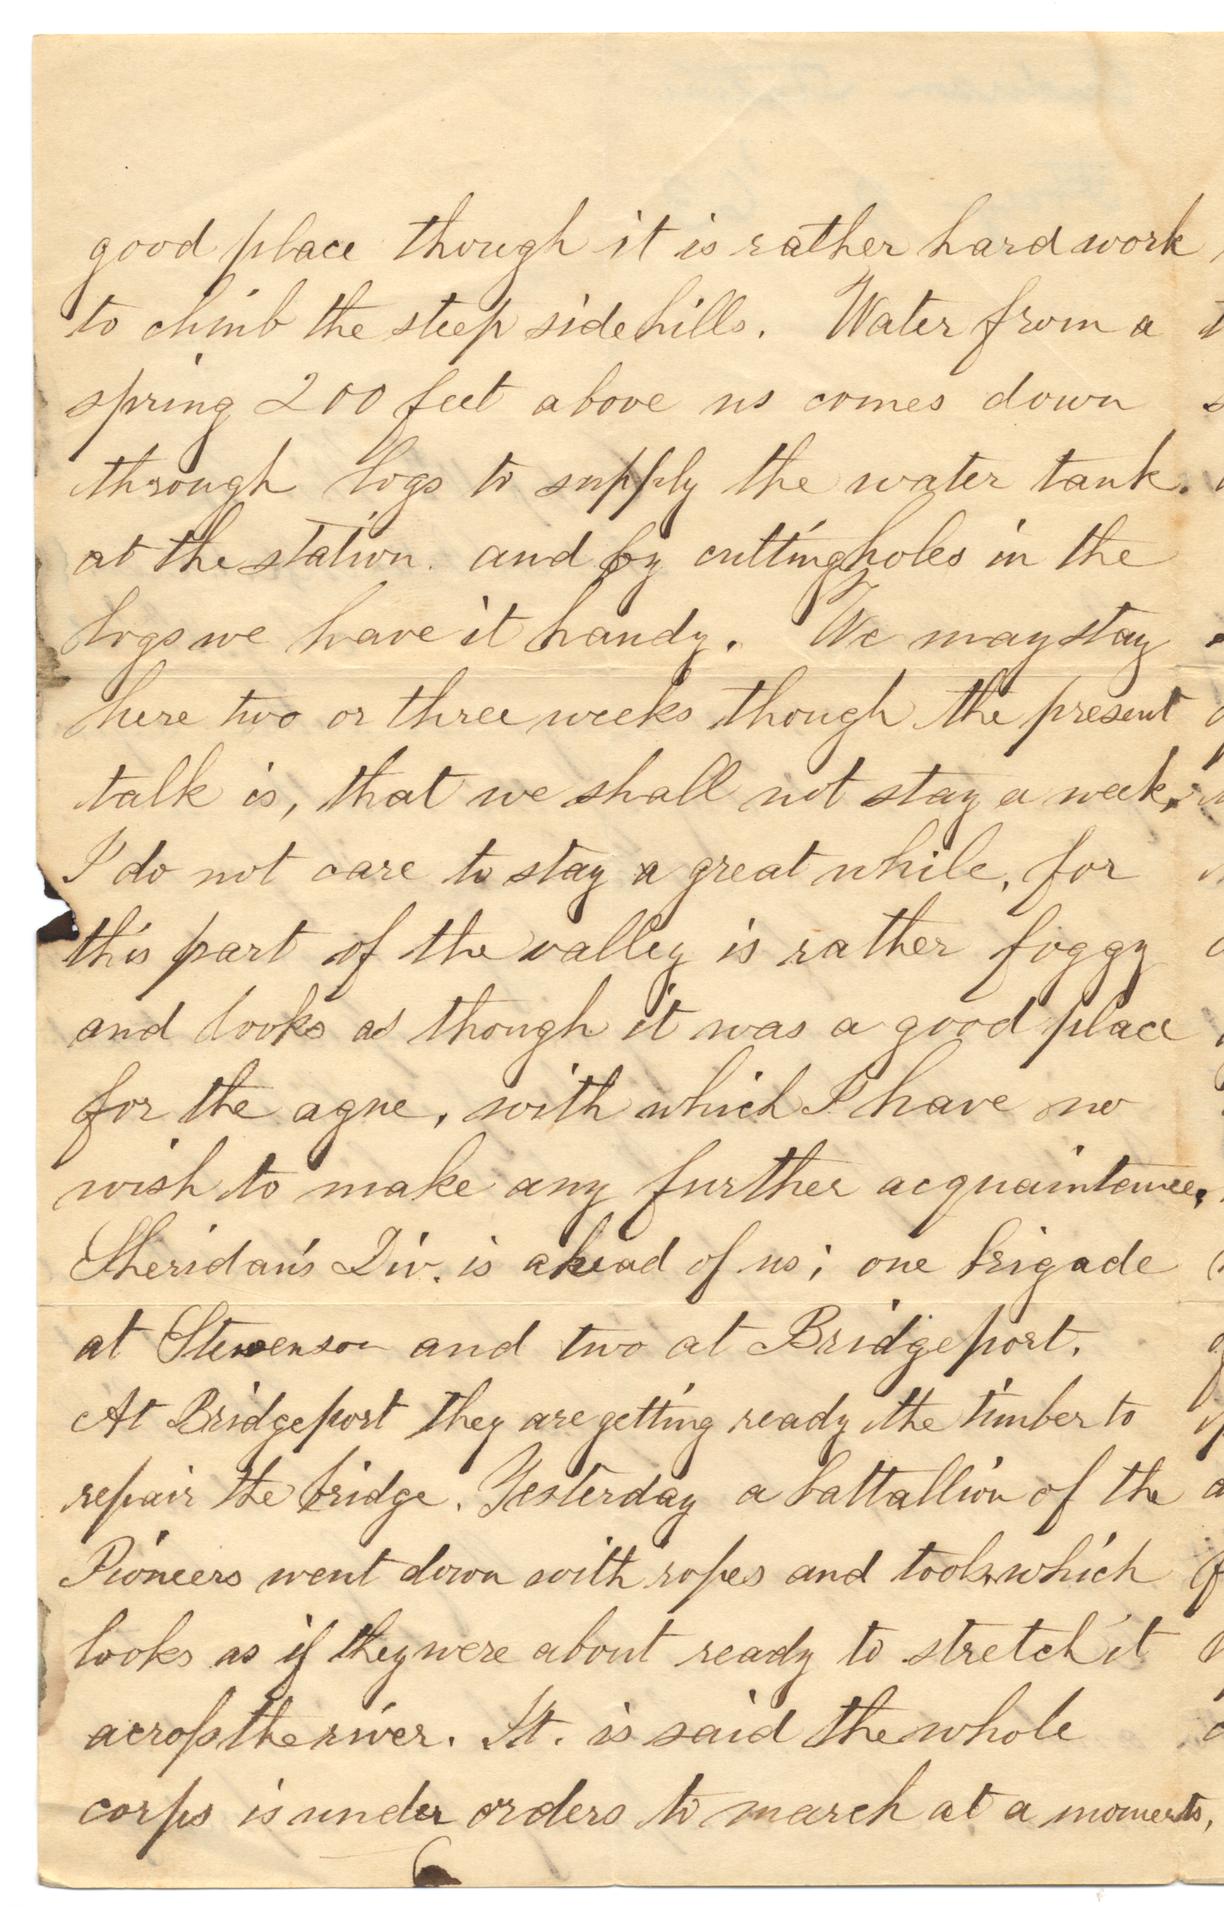 good place though it is rather hard work
to climb the steep side hills. Water from a
spring 200 feet above us comes down
through logs to supply the water tank.
at the station. and by cutting holes in the
logs we have it handy. We may stay
here two or three weeks though the present
talk is, that we shall not stay a week,
I do not care to stay a great while, for
this part of the valley is rather foggy
and looks as though it was a good place
for the ague, with which I have no
wish to make any further acquaintance.
Sheridan's Div. is ahead of us; one brigade
at Stevenson and two at Bridgeport.
At Bridgeport they are getting ready the timber to
repair the bridge. Yesterday a battallion of the
Pioneers went down with ropes and tools which
looks as if they were about ready to stretch it
across the river. It. is said the whole
corps is under orders to march at a moments,